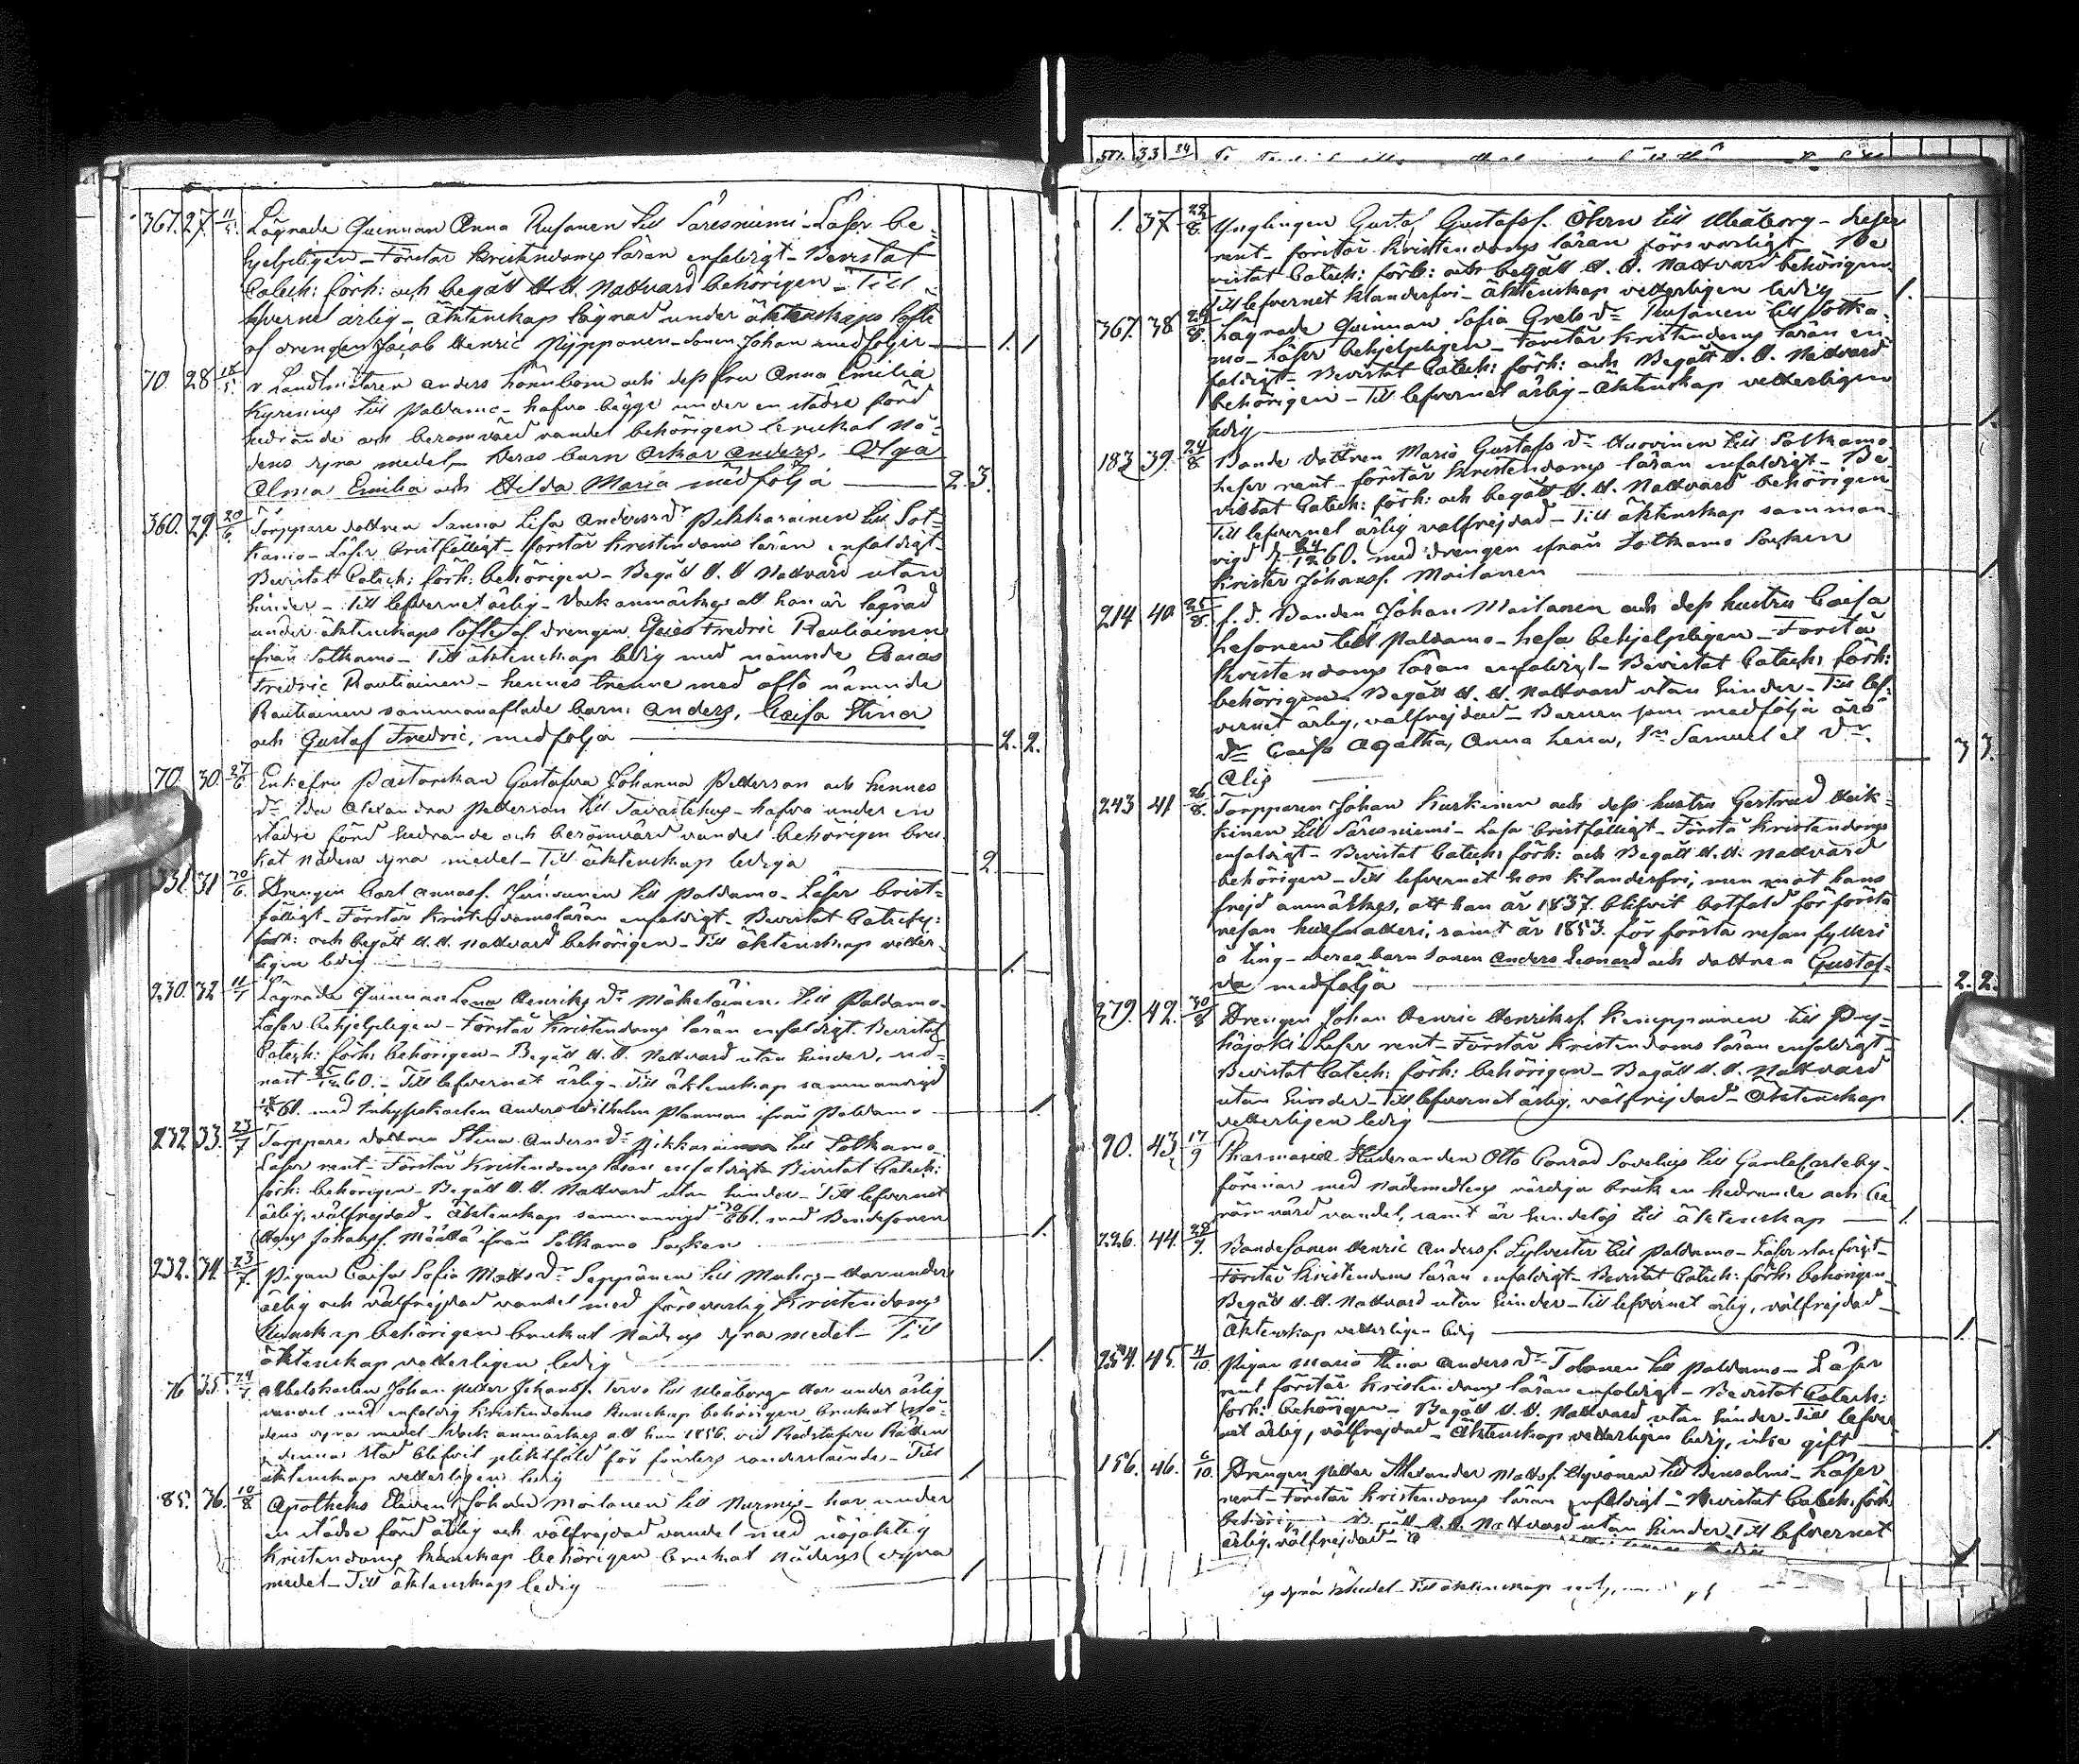 367. 27. 11/5. Lägrade Quinnan Anna Rusanen till Säresniemi - Läser be=
hjelpligen - Förstår Kristendoms läran enfaldigt - Bevistat
Catech: förh: och begått H. H. Nattvard behörigen - Till
lefverne ärlig - Äktenskap lägrad under äktenskaps löfte
af drengen Jacob Henric Nyppönen - sonen Johan medföljer - 1. 1
70. 28 18/5. Landtmätaren Anders Lönnbom och dess fru Anna Emilia
Kyrenius till Paldamo - hafva bägge under en städse förd
hedrande och berömvärd vandel behörigen brukat Nå=
dens dyra medel - Deras barn Oskar Anders, Olga
Alma Emilia och Hilda Maria medfölja - 2. 3.
360. 29. 20/6. Torppare dottren Sanna Lisa Andersdr Pikkarainen till Sot=
kamo - Läser bristfälligt - förstår Kristendoms läran enfaldigt -
Bevistat Catech: förh: behörigen - Begått H. H Nattvard utan
hinder - Till lefvernet ärlig - Dock anmärkes att hon är lägrad
under äktenskaps löfte af drengen Fredric Rautiainen
ifrån Sotkamo - Till äktenskap ledig med nämnde Esaias
Fredric Rautiainen - hennes trenne med ofta nämnde
Rautiainen sammanaflade barn: Anders, Caisa Stina
och Gustaf Fredric, medfölja - 2. 2.
70. 30. 27/6 Enkefru Pastorskan Gustafva Johanna Petterson och hennes
dr Ida Alexandra Petterson till Tavastehus - hafva under en
städse förd hedrande och berömvärd vandel behörigen bru=
kat nådens dyra medel - Till äktenskap lediga - 2
31 30/6. Drengen Carl Annasf. Juvonen till Paldamo - Läser brist=
fälligt - Förstår Kristendomsläran enfaldigt - Bevistat Catech:
förh: och begått H. H. Nattvard behörigen - Till äktenskap vetter=
ligen ledig - 1.
230. 32 11/7 Lägrade Quinnan Lena Henriks dr Mäkeläinen till Paldamo -
Läser behjelpligen - Förstår Kristendoms läran enfaldigt. Bevistat
Catech: förh: behörigen - Begått H. H. Nattvard utan hinder, sed=
nast 25/12 60. - Till lefvernet ärlig - Till äktenskap sammanvigd
61. med Inhyseskarlen Anders Wilhelm Planman ifrån Paldamo - 1.
232 33. 23/7 Torppare dottren Stina Andersdr Pikkarainen till Sotkamo
Läser rent - Förstår Kristendoms läran enfaldigt - Bevistat Catech:
förh: behörigen - Begått H. H. Nattvard utan hinder - Till lefvernet
ärlig, välfrejdad - Äktenskap sammanvigd 61. med Bondesonen
Johansf. Määttä ifrån Sotkamo Socken - 1.
232. 34. 23/7. Pigan Caisa Sofia Mattsdr Seppänen till Muhos - Har under
ärlig och välfrejdad vandel med försvarlig Kristendoms
kunskap behörigen brukat Nådens dyra medel - Till
äktenskap vetterligen ledig - 1.
76 35. Arbetskarlen Johan Petter Johansf. Tervo till Uleåborg - Har under ärlig
vandel med enfaldig Kristendoms kunskap behörigen brukat Nå=
dens dyra medel - Dock anmärkes att han 1856. vid Rådstufvu Rätten
i denna stad blifvit pliktfäld för fönsters sönderslående - Till
äktenskap vetterligen ledig - 1
85. 36. 10/8 Apotheks Eleven Johan Moilanen till Nurmis - har under
en städse förd ärlig och välfrejdad vandel med nöjaktig
Kristendoms kunskap behörigen brukat Nådens dyra
medel - Till äktenskap ledig - 1
571. 33 24
1. 37 22/8. Ynglingen Gustaf Gustafsf. Öhrn till Uleåborg - Läser
rent - förstår Kristendoms läran försvarligt - Be
vistat Catech: förh: och begått H. H. Nattvard behörigen
Till lefvernet klanderfri - äktenskap vetterligen ledig - 1.
367. 38 24/8. Lägrade Quinnan Sofia Greta dr Rusanen till Sotka=
mo - Läser behjelpligen - Förstår Kristendoms läran en=
faldigt - Bevistat Catech: förh: och Begått H. H. Nattvard
behörigen - Till lefvernet ärlig - Äktenskap vetterligen
ledig - 1.
183 39. 24/8 Bonde dottren Maria Gustafs dr Huovinen till Sotkamo
Läser rent - förstår Kristendoms läran enfaldigt - Be=
vistat Catech: förh: och begått H. H. Nattvard behörigen
Till lefvernet ärlig välfrejdad - Till äktenskap samman=
vigd d. 60. med drengen ifrån Sotkamo Socken
Krister Johansf. Moilanen - 1
214 40 25/8. f. d. Bonden Johan Moilanen och dess hustru Caisa
till Paldamo - Läsa behjelpligen - Förstå
Kristendoms läran enfaldigt - Bevistat Catech: förh:
behörigen - Begått H. H. Nattvard utan hinder - Till lef=
vernet ärlig, välfrejdad - Barnen som medfölja äro
dr Caisa Agatha, Anna Lena, sn Samuel et dr
Alis - 3 3.
243 41 26/8. Torpparen Johan Kurkinen och dess hustru Gertrud Heik=
kinen till Säresniemi - Läsa bristfälligt - Förstå Kristendoms
enfaldigt - Bevistat Catech: förh: och Begått H. H. Nattvard
behörigen - Till lefvernet hon klanderfri, men mot hans
frejd anmärkes, att han år 1837. blifvit botfäld för första
resan, samt år 1853. för första resan fylleri
å ting - Deras barn sonen Anders Leonard och dottren Gustaf=
va medfölja - 2. 2.
279. 42. 30/8 Drengen Johan Henric Henriksf. Kemppainen till Py=
häjoki - Läser rent - Förstår Kristendoms läran enfaldigt -
Bevistat Catech: förh: behörigen - Begått H. H. Nattvard
utan hinder - Till lefvernet ärlig, välfrejdad - Äktenskap
vetterligen ledig - 1.
90. 43. 17/9 Pharmacie Studeranden Otto Conrad Sovelius till Gamlecarleby -
förenar med Nådemedlens värdiga bruk en hedrande och be
römvärd vandel, samt är hinderlös till äktenskap - 1.
226. 44. 28/9. Bondesonen Henric Andersf. Sylvester till Paldamo - Läser
Förstår Kristendoms läran enfaldigt - Bevistat Catech: förh: behörigen -
Begått H. H. Nattvard utan hinder - Till lefvernet ärlig, välfrejdad -
Äktenskap vetterligen ledig - 1.
254. 45. 4/10. Pigan Maria Stina Anders dr Tolonen till Paldamo - Läser
rent förstår Kristendoms läran enfaldigt - Bevistat Catech:
förh: behörigen - Begått H. H. Nattvard utan hinder - Till lefver
net ärlig, välfrejdad - Äktenskap vetterligen ledig, icke gift - 1.
156. 46. 6/10. Drengen Petter Alexander Mattsf. Hyvönen till Idensalmi - Läser
rent - Förstår Kristendoms läran enfaldigt - Bevistat Catech. förh.
behörigen H. H. Nattvard utan hinder. Till lefvernet
ärlig, välfrejdad -
dyra Medel - Till äktenskap